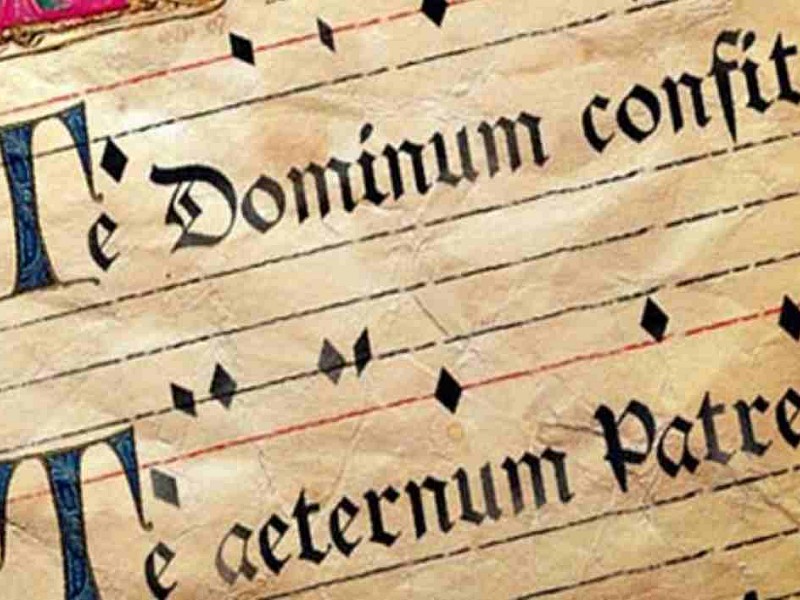 Te Dominum confit
Te aeternum Patre